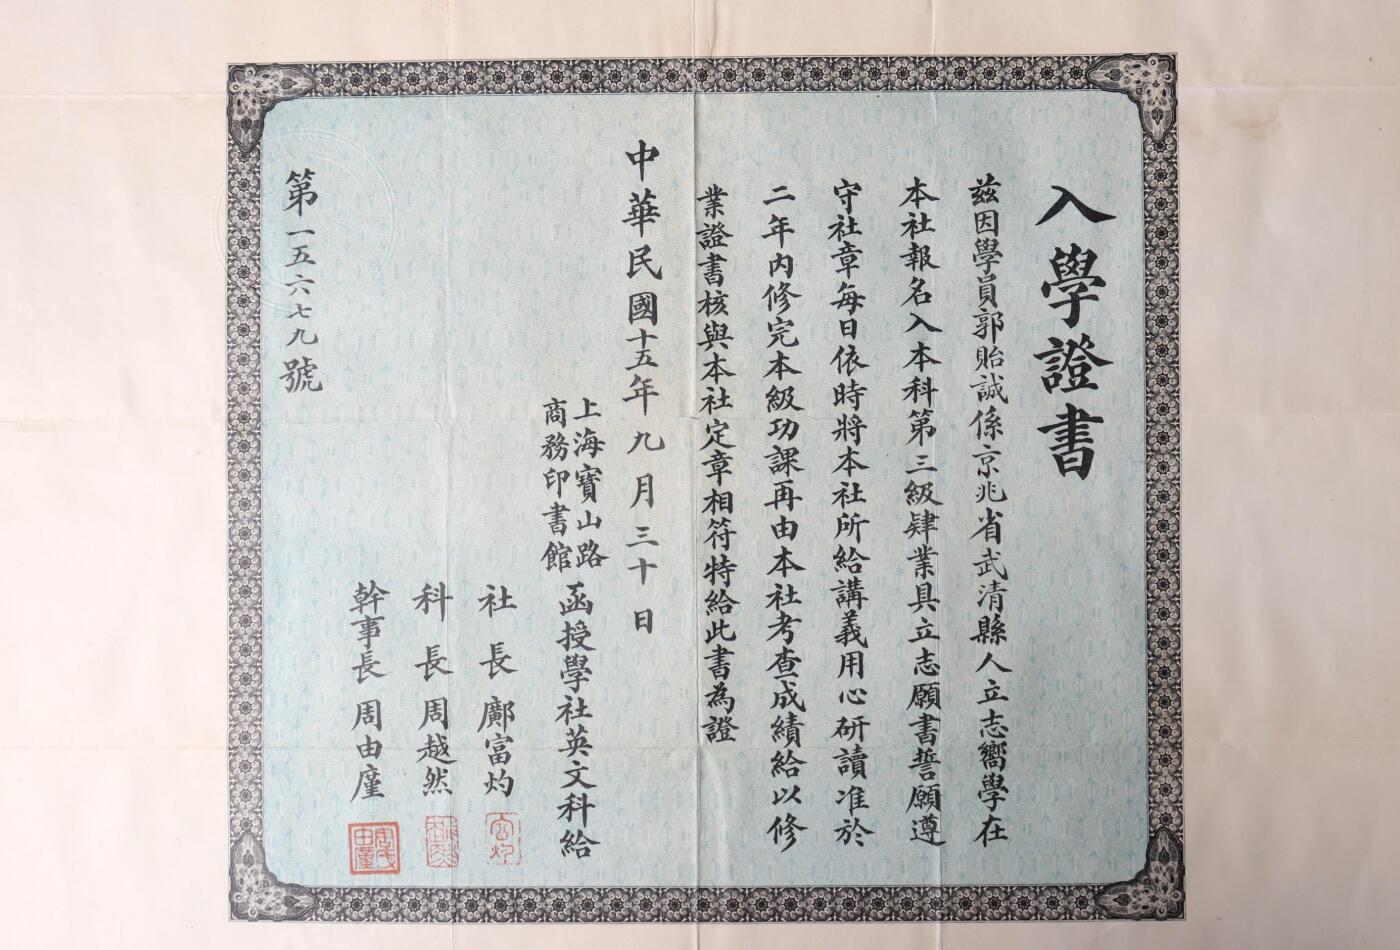 入學證書
茲因學員郭貽誠係京兆省武清縣人立志嚮學在
本社報名入本科第三級肄業具立志願書誓願遵
守社章每日依時將本社所給講義用心研讀准於
二年內修完本級功課再由本社考查成績給以修
業證書核與本社定章相符特給此書為證
中華民國十五年九月三十日
上海寶山路
商務印書館
函授學社英文科給
社長鄺富灼
科長周越然
幹事長周由廑
第一五六七九號
周由廑